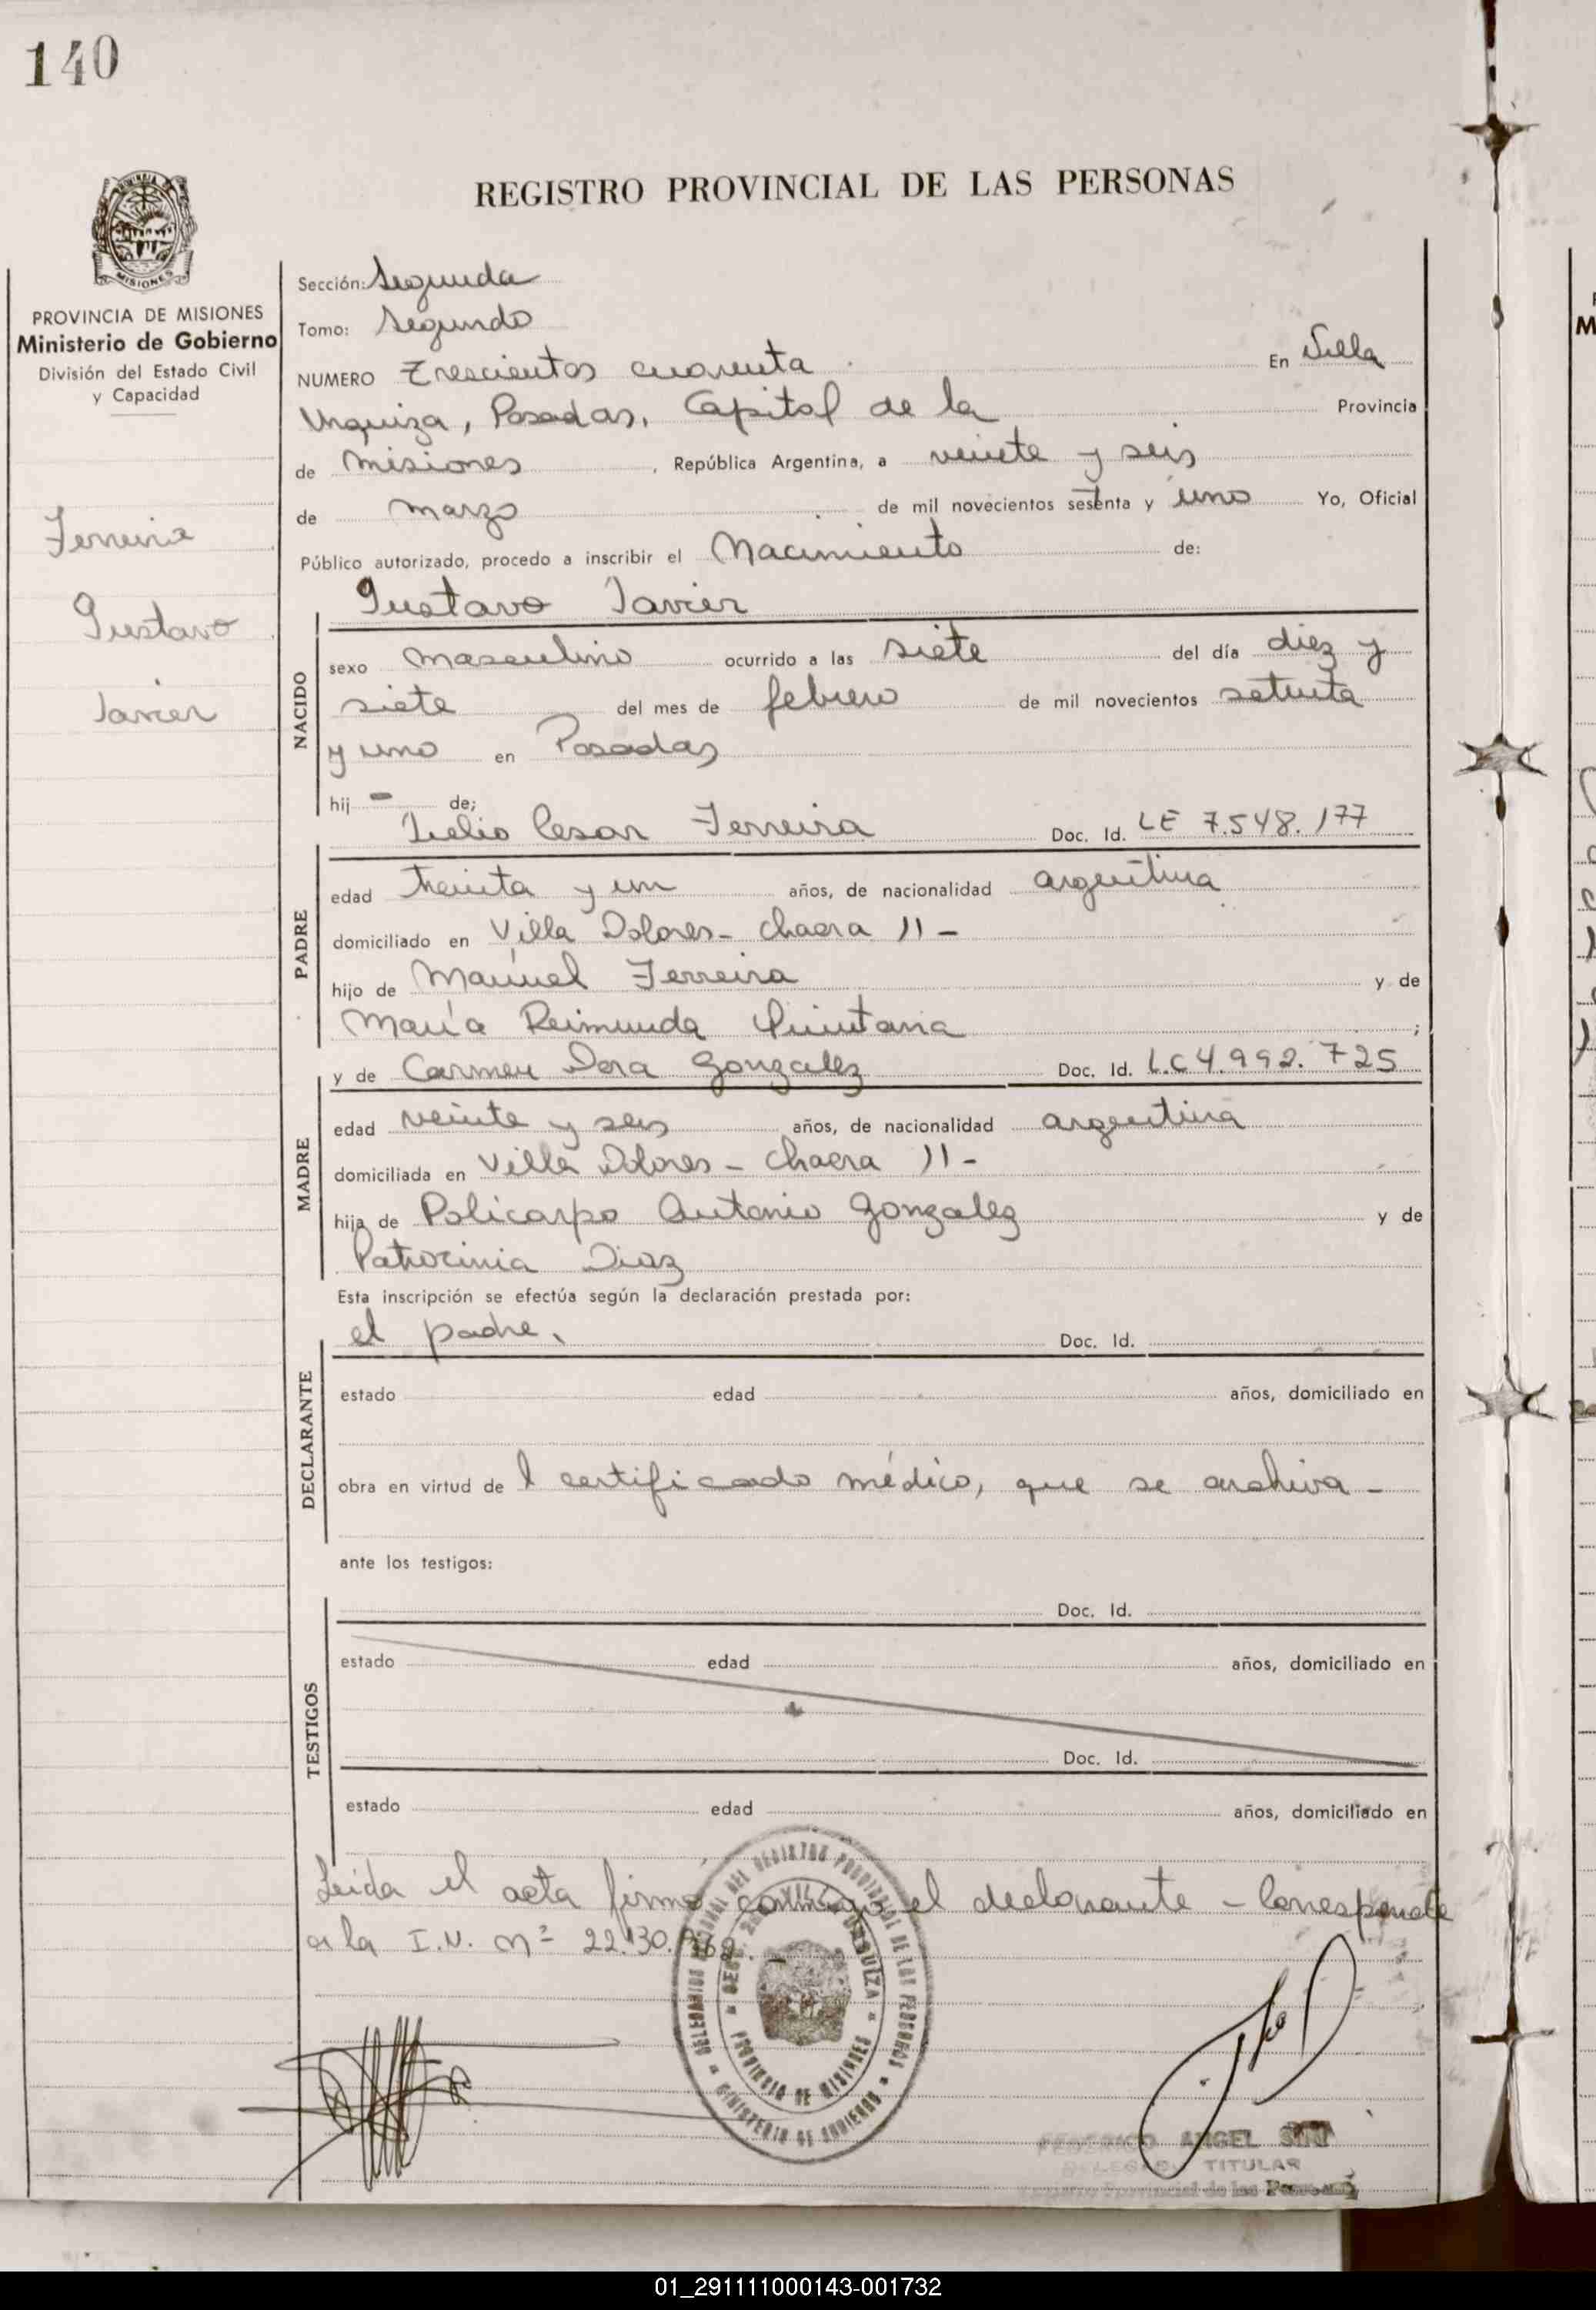 140
REGISTRO PROVINCIAL DE LAS PERSONAS
MISIONES
PROVINCIA DE MISIONES
Ministerio de Gobierno
División del Estado Civil
y Capacidad
Ferreira
Gustavo
Javier
Sección: Segunda
Tomo: Segundo
NUMERO Trescientos cuarenta. En Villa
Urquiza, Posadas, Capital de la Provincia
de Misiones, República Argentina, a veinte y seis
de marzo de mil novecientos setenta y uno Yo, Oficial
Público autorizado, procedo a inscribir el Nacimiento de:
Gustavo Javier
NACIDO
sexo masculino ocurrido a las siete del día diez y
siete del mes de febrero de mil novecientos setenta
y uno en Posadas
hij - de;
Julio Cesar Ferreira Doc. Id. LE 7.548.177
PADRE
edad treinta y un años, de nacionalidad argentina
domiciliado en Villa Dolores - chacra 11 -
hijo de Manuel Ferreira y de
María Reimunda Quintana ;
y de Carmen Dora Gonzalez Doc. Id. L.C 4.992.725
MADRE
edad veinte y seis años, de nacionalidad argentina
domiciliada en Villa Dolores - chacra 11 -
hija de Policarpo Antonio Gonzalez y de
Patrocinia Diaz
Esta inscripción se efectúa según la declaración prestada por:
el padre. Doc. Id.
DECLARANTE
estado edad años, domiciliado en
obra en virtud de l certificado médico, que se archiva -
ante los testigos:
Doc. Id.
TESTIGOS
estado edad años, domiciliado en
Doc. Id.
estado edad años, domiciliado en
Leida el acta firma conmigo el declarante - Corresponde
a la I.N. nº 22.130.
PROVINCIA DE MISIONES
MINISTERIO DE GOBIERNO
URQUIZA
FEDERICO ANGEL
DELEGADO TITULAR
Registro Provincial de las Personas
01_291111000143-001732